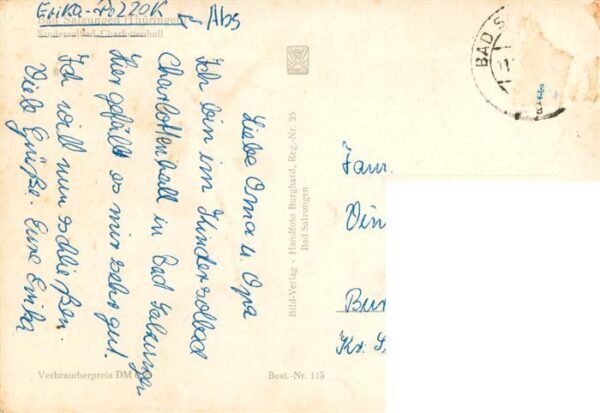 Erika
Abs
Bad Salzungen (Thüringen)
Kindersolbad Charlottenhall
Liebe Oma u. Opa
Ich bin im Kindersolbad
Charlottenhall in Bad Salzungen
hier gefällt es mir sehr gut.
Ich will nun schließen.
Viele Grüße. Eure Erika
Bild-Verlag - Handfoto Burghard, Reg.-Nr. 35
Bad Salzungen
BAD S
Fam.
Kr. S
Verbraucherpreis DM
Best.-Nr. 116